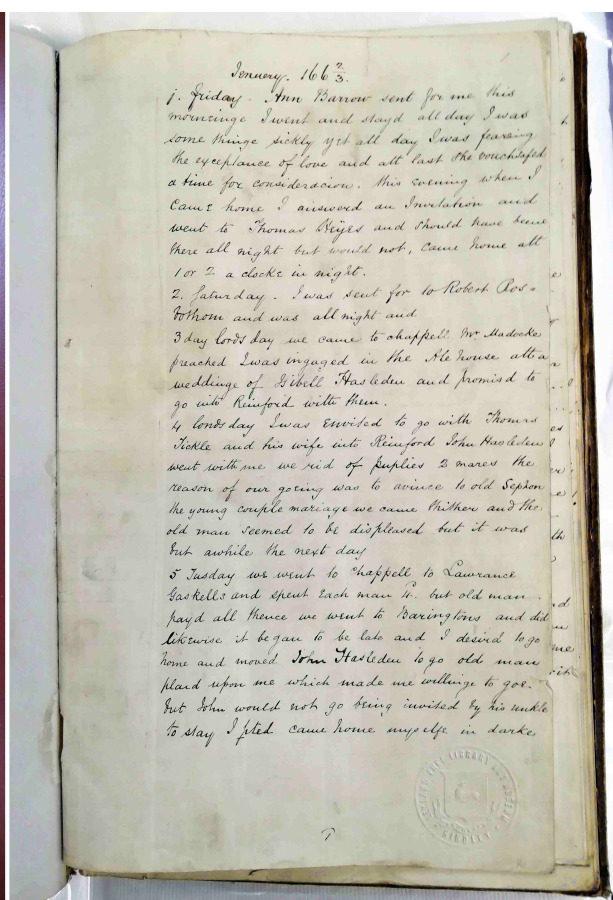 Jenuery. 166 2/3.
1. friday - Ann Barrow sent for me this
morneinge I went and stayd all day I was
some thinge sickly yet all day I was fearing
the exceptance of love and att last she vouchsafed
a time for consideracion. this evening when I
came home I answered an Invitation and
went to Thomas Heyes and should have beene
there all night but would not, came home att
1 or 2 a clocke in night.
2. Saturday. I was sent for to Robert Ros=
bothom and was all night and
3 day lords day we came to chappell Mr Madocke
preached I was ingaged in the Ale house att a
weddinge of Isibell Hasleden and promisd to
go into Reinford with them.
4 londsday I was envited to go with Thomas
Tickle and his wife into Reinford John Hasleden
went with me we rid of puplies 2 mares the
reason of our going was to avince to old Sephon
the young couple mariage we came thither and the
old man seemed to be displeased but it was
but awhile the next day
5 Tusday we went to chappell to Lawrance
Gaskells and spent each man but old man
payd all thence we went to Baringtons and did
likewise it began to be late and I desired to go
home and moved John Hasleden to go old man
plaid upon me which made me willinge to goe.
but John would not go being invited by his unkle
to stay I pted came home myselfe in darke
LIBRARY